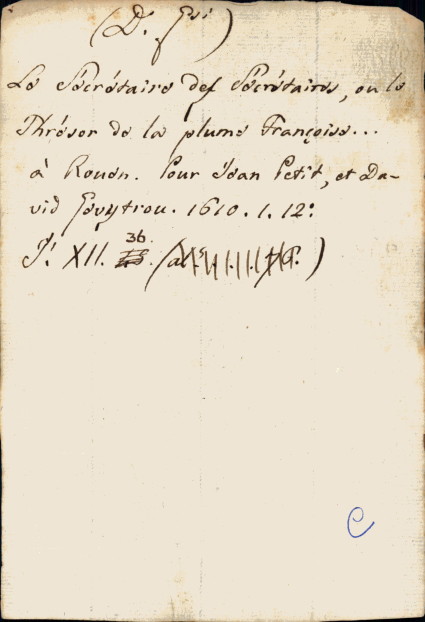 (D. Gsi)
Le Sécrétaire des Sécrétaires, ou le
Thrésor de la plume Françoise...
à Rouen. Pour Jean Petit, et Da-
vid 1610. 1. 12°.
J. XII. 36.
C